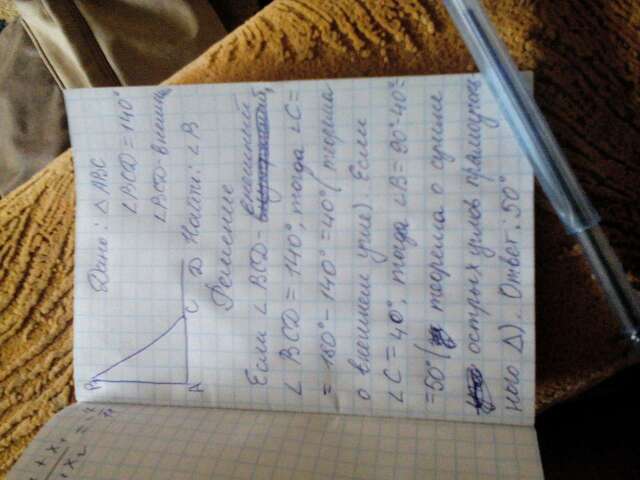 Дано: △ ABC
∠BCD = 140°
∠BCD внешн.
Найти: ∠B
B
A
C
D
Решение
Если ∠ BCD - внешний,
∠ BCD = 140°, тогда ∠C =
= 180° - 140° = 40° (теорема
о внешнем угле). Если
∠C = 40°, тогда ∠B = 90°-40°=
= 50° (теорема о сумме
острых углов прямоуголь
ного △). Ответ: 50°